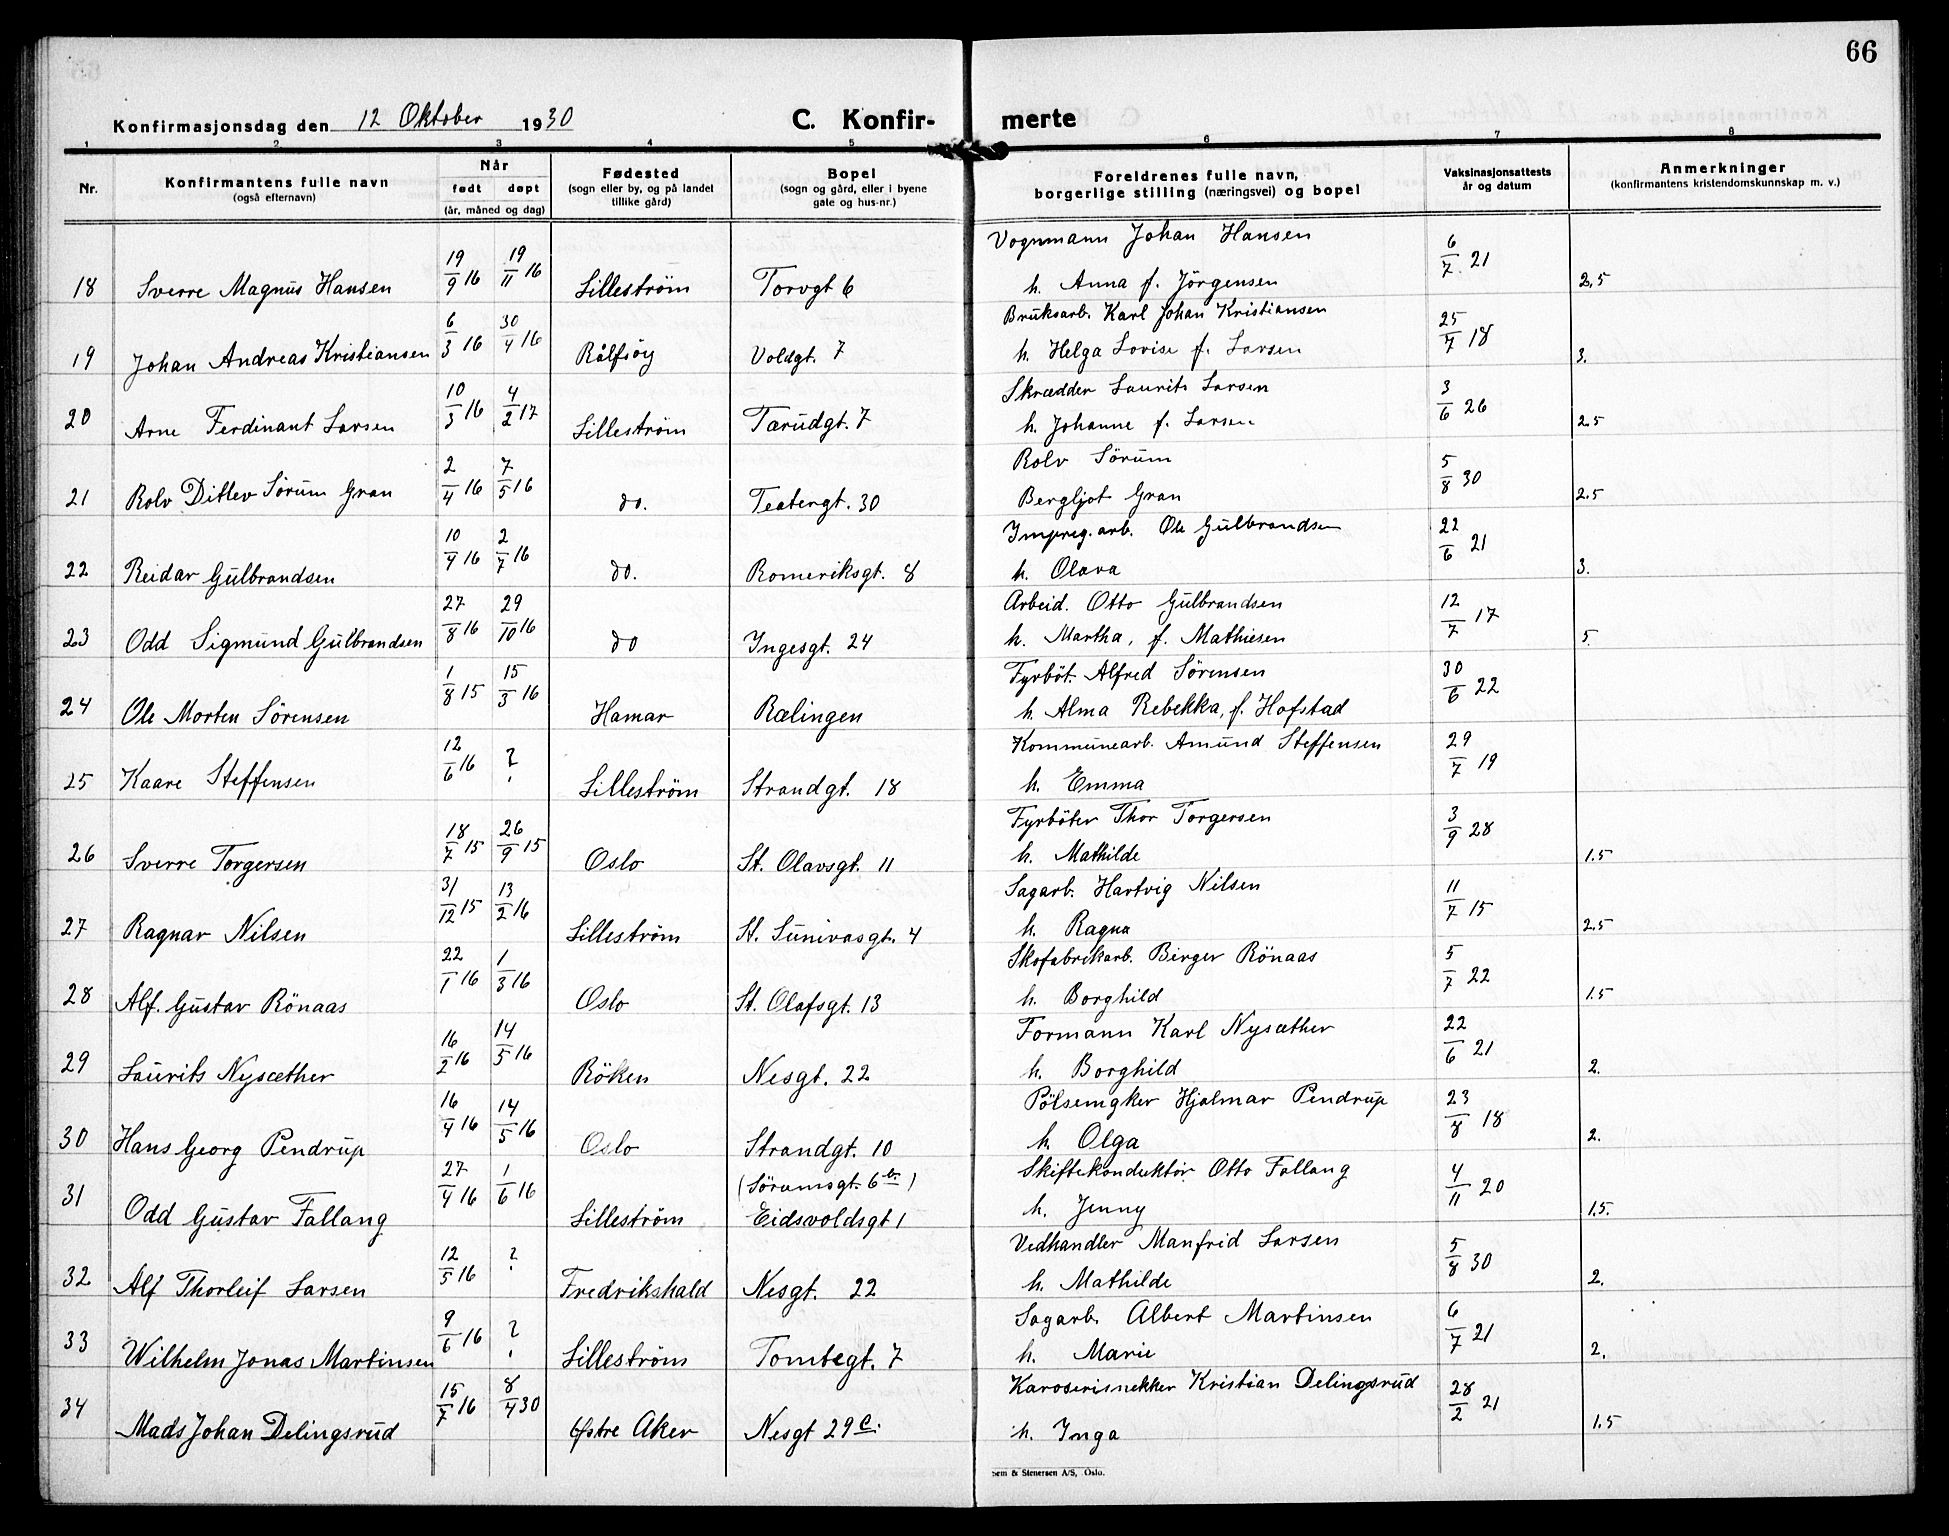 66
Konfirmasjonsdag den 12 Oktober 1930
C. Konfir- merte
1 2 3 4 5 6 7 8
Nr. Konfirmantens fulle navn (også efternavn) Når født døpt (år, måned og dag) Fødested (sogn eller by, og på landet tillike gård) Bopel (sogn og gård, eller i byene gate og hus-nr.) Foreldrenes fulle navn, borgerlige stilling (næringsvei) og bopel Vaksinasjonsattests år og datum Anmerkninger (konfirmantens kristendomskunnskap m. v.)
Vognmann Johan Hansen
18 Sverre Magnus Hansen 19/9 16 19/11 16 Lilleström Torvgt 6 h. Anna f. Jörgensen 6/7 21 2,5
Bruksarb. Karl Johan Kristiansen
19 Johan Andreas Kristiansen 6/3 16 30/4 16 Rålfsöy Voldgt. 7 h. Helga Lovise f. Larsen 25/7 18 3.
Skrædder Laurits Larsen
20 Arne Ferdinant Larsen 10/3 16 4/2 17 Lilleström Tærudgt. 7 h. Johanne f. Larsen 3/6 26 2.5
Rolv Sörum
21 Rolv Ditlev Sörum Gran 2/4 16 7/5 16 do. Teatergt. 30 Bergljot Gran 5/8 30 2.5
Impreg. arb. Ole Gulbrandsen
22 Reidar Gulbrandsen 10/4 16 2/7 16 do. Romeriksgt. 8 h. Olava 22/6 21 3.
Arbeid. Otto Gulbrandsen
23 Odd Sigmund Gulbrandsen 27/8 16 29/10 16 do Ingesgt. 24 h. Martha, f. Mathiesen 12/7 17 5.
Fyrböt. Alfred Sörensen
24 Ole Morten Sörensen 1/8 15 15/3 16 Hamar Rælingen h. Alma Rebekka, f. Hofstad 30/6 22
Kommunearb. Amund Steffensen
25 Kaare Steffensen 12/6 16 ? Lilleström Strandgt. 18 h. Emma 29/7 19
Fyrböter Thor Torgersen
26 Sverre Torgersen 18/7 15 26/9 15 Oslo St. Olavsgt. 11 h. Mathilde 3/9 28 1.5
Sagarb. Hartvig Nilsen
27 Ragnar Nilsen 31/12 15 13/2 16 Lilleström St. Sunivasgt. 4 h. Ragna 11/7 15 2.5
Skofabrikarb. Birger Rönaas
28 Alf. Gustav Rönaas 22/1 16 1/3 16 Oslo St. Olafsgt. 13 h. Borghild 5/7 22 1.5
Formann Karl Nysæther
29 Laurits Nysæther 16/2 16 14/5 16 Röken Nesgt. 22 h. Borghild 22/6 21 2.
Pölsemgker Hjalmar Pendrup
30 Hans Georg Pendrup 16/4 16 14/5 16 Oslo Strandgt. 10 h. Olga 23/8 18 2.
(Sörumsgt. 6 b.) Skiftekonduktör Otto Fallang
31 Odd Gustav Fallang 27/4 16 1/6 16 Lilleström Eidsvoldsgt 1 h. Jenny 4/11 20 1.5.
Vedhandler Manfrid Larsen
32 Alf Thorleif Larsen 12/5 16 ? Fredrikshald Nesgt. 22 h. Mathilde 5/8 30 2.
Sagarb. Albert Martinsen
33 Wilhelm Jonas Martinsen 9/6 16 ? Lilleström Tomtegt. 7 h. Marie 6/7 21 2.
Karoserisnekker Kristian Delingsrud
34 Mads Johan Delingsrud 15/7 16 8/4 30 Østre Aker Nesgt 29 c. h. Inga 28/2 21 1.5
Sem & Stenersen A/S, Oslo.